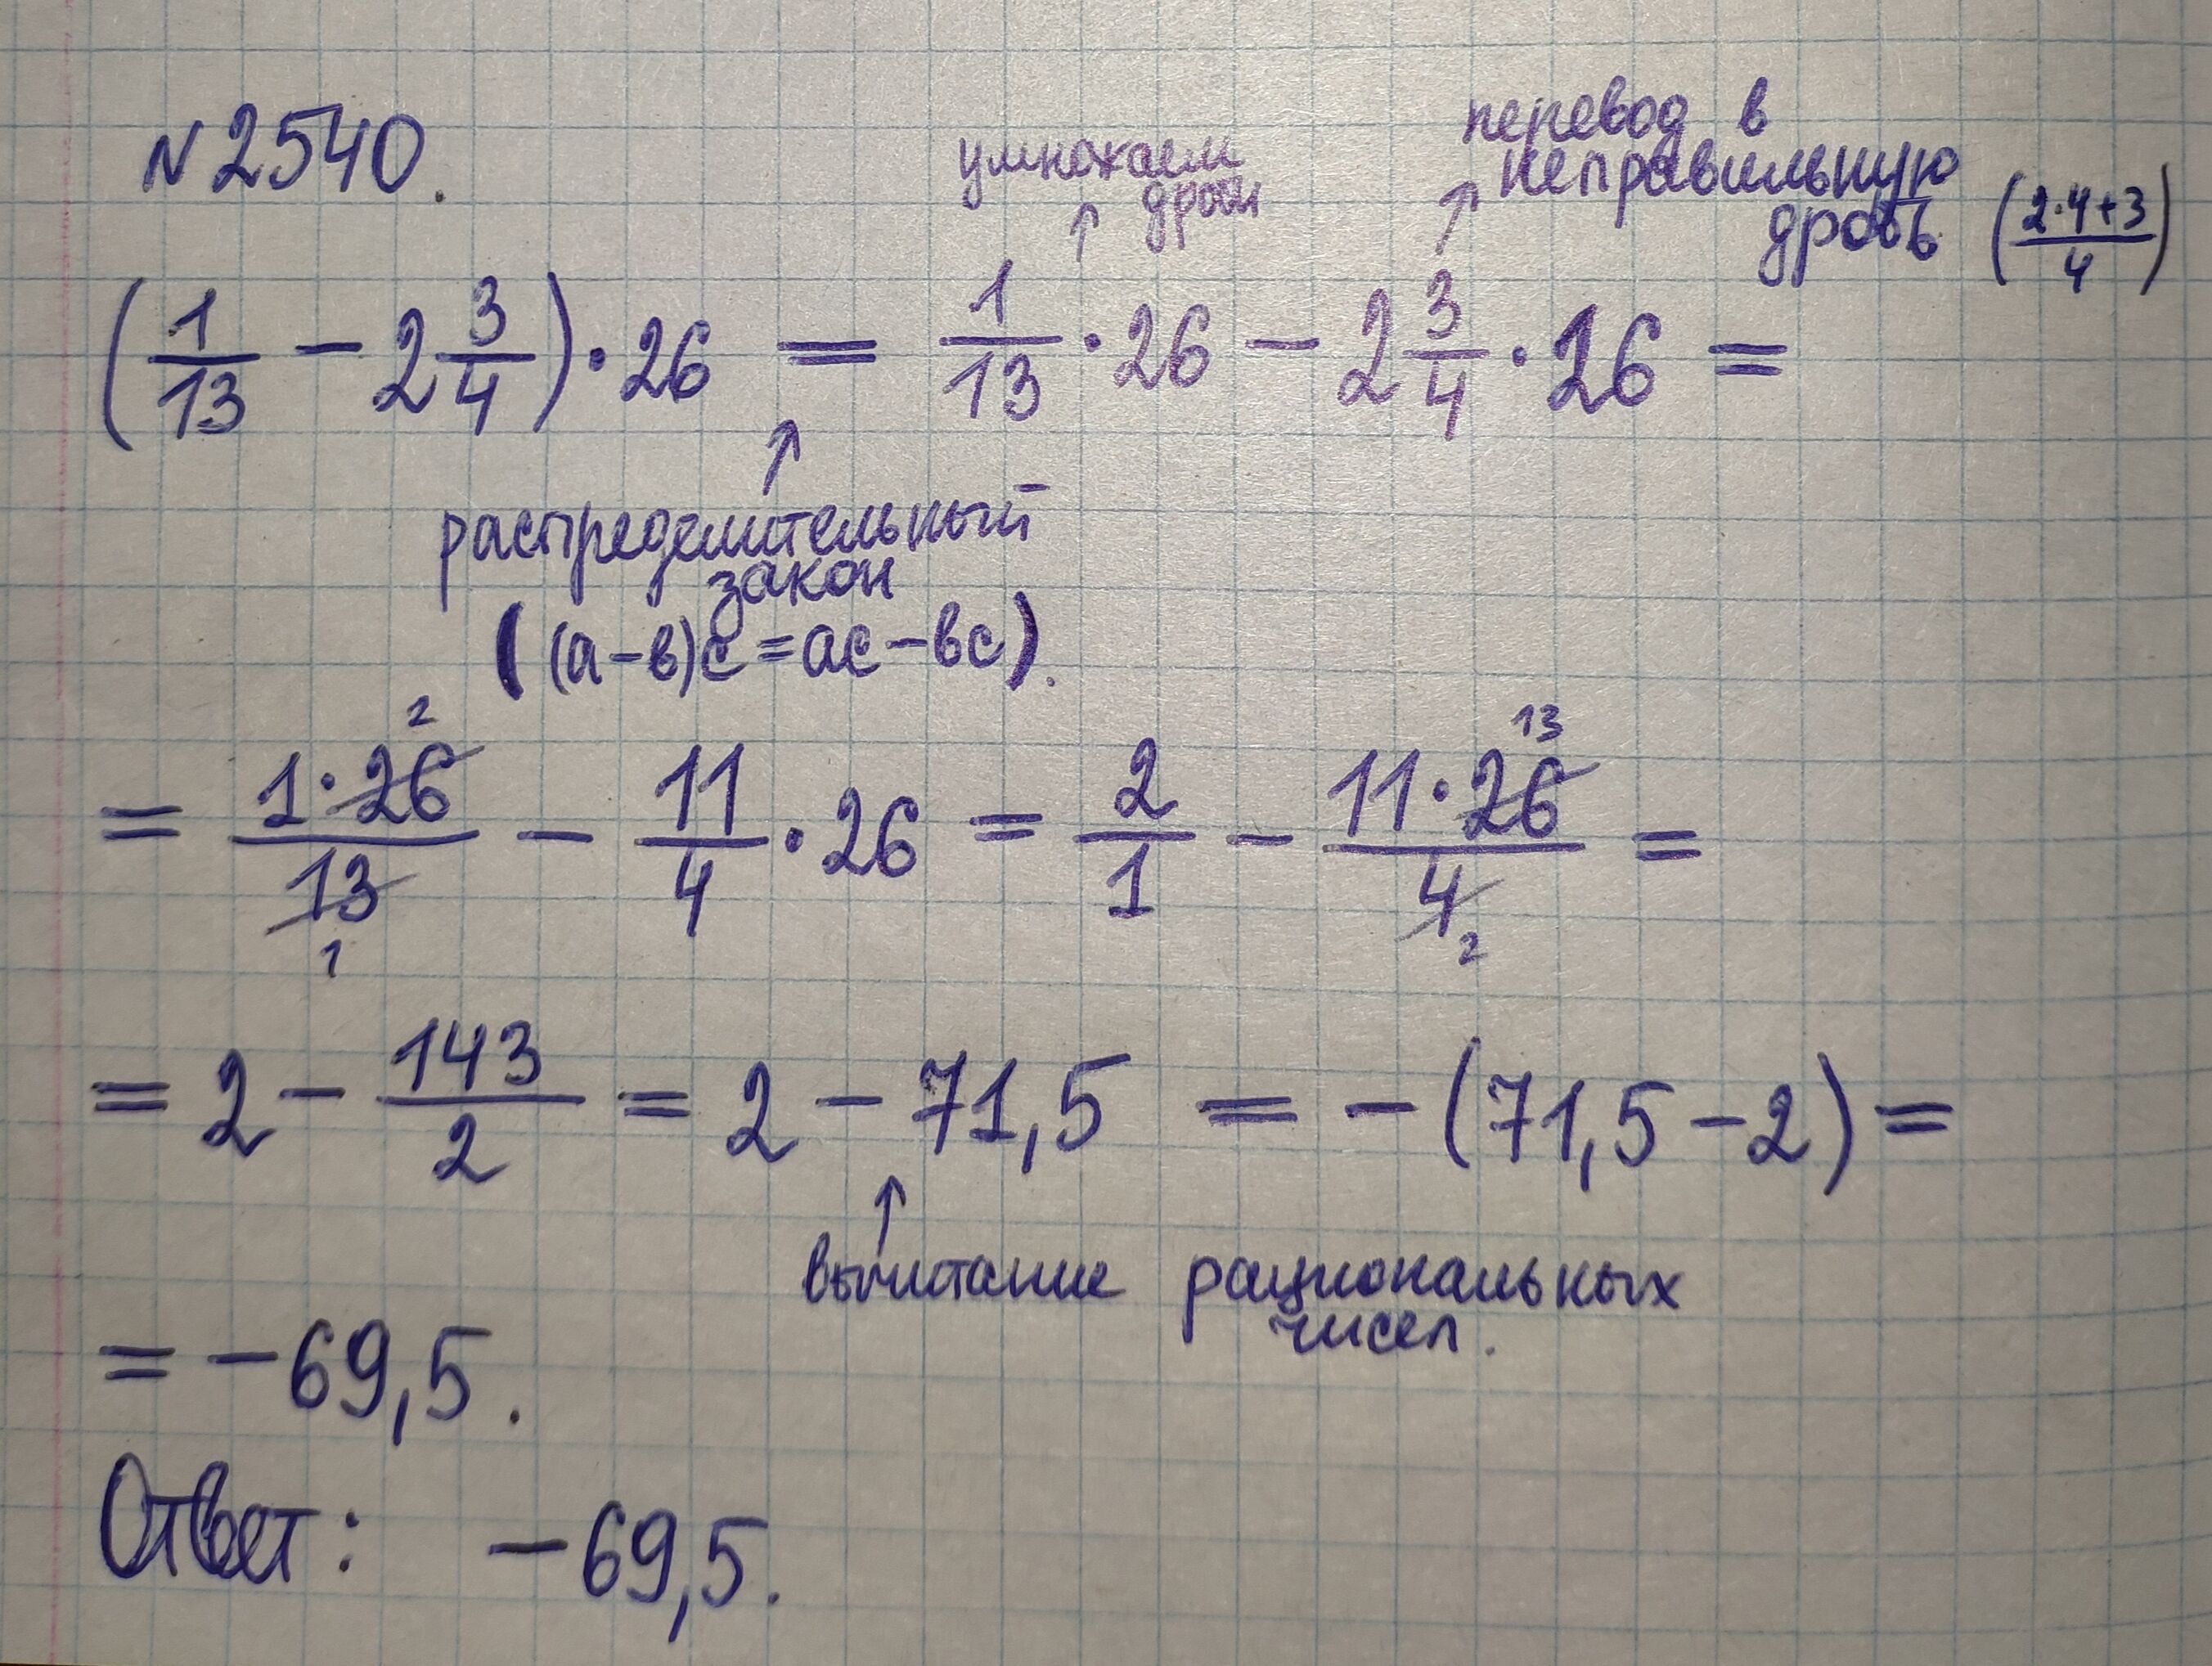 N 2540.
умножаем
дроби
перевод в
неправильную
дробь ((2·4+3)/4)
(1/13 − 2 3/4) · 26 = 1/13 · 26 − 2 3/4 · 26 =
распределительный
закон
((а−в)с=ас−вс).
= 1·26/13 − 11/4 · 26 = 2/1 − 11·26/4 =
2 1 13 2
= 2 − 143/2 = 2 − 71,5 = −(71,5−2) =
вычитание рациональных
чисел.
= −69,5.
Ответ: −69,5.